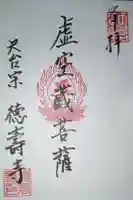 奉拝
虚空蔵菩薩
天台宗 徳壽寺